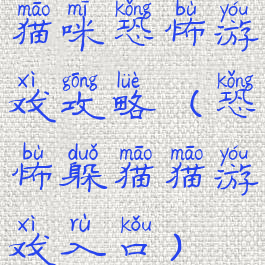 māo mī kǒng bù yóu
猫咪恐怖游
xì gōng lüè kǒng
戏攻略（恐
bù duǒ māo māo yóu
怖躲猫猫游
xì rù kǒu
戏入口）